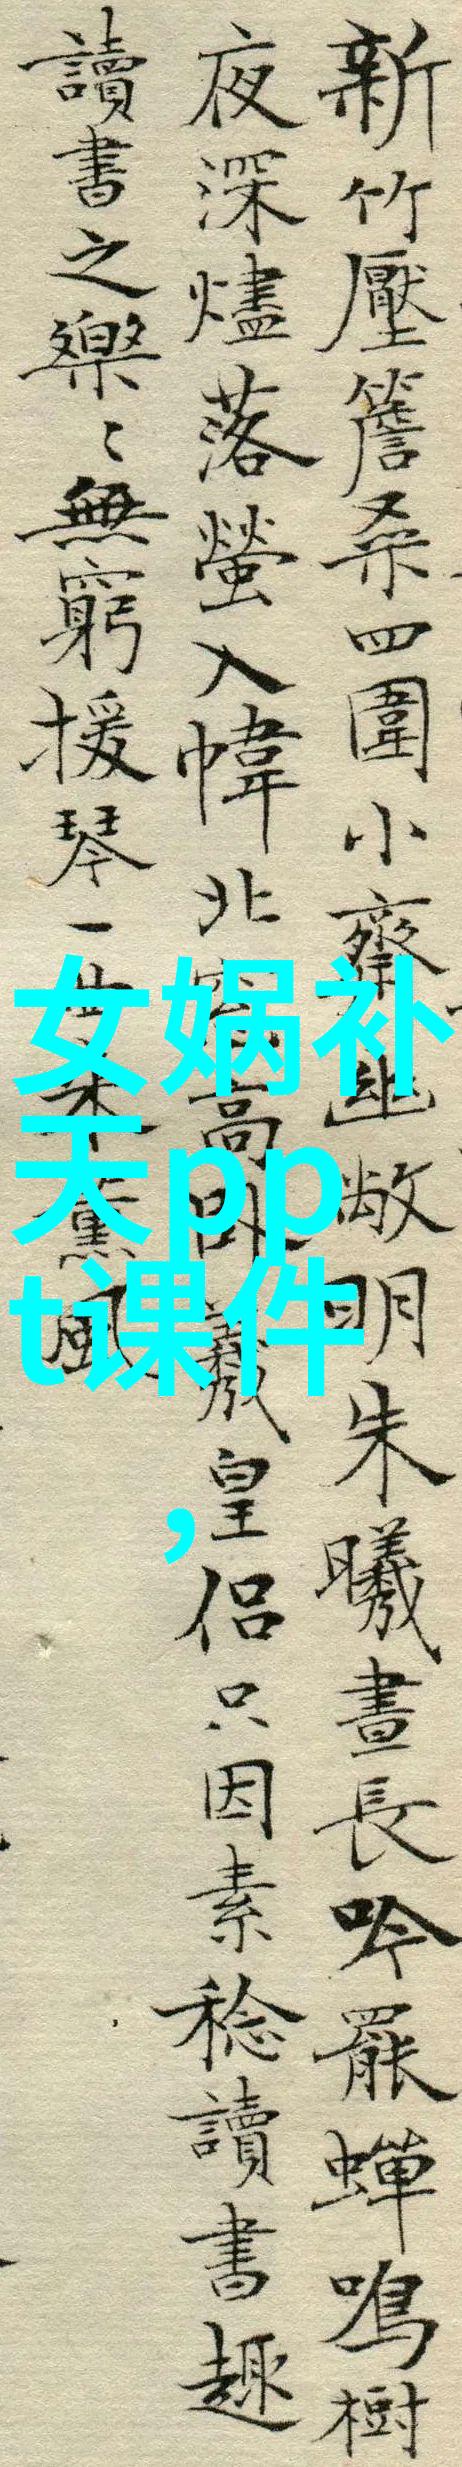 新竹壓簷桑四圍小齋幽敞明朱曦晝長吟罷蟬鳴樹
夜深燼落螢入幃北窗高卧羲皇侶只因素稔讀書趣
讀書之樂〻無窮援琴一曲來薰風
女娲补
天pp
t课件
,